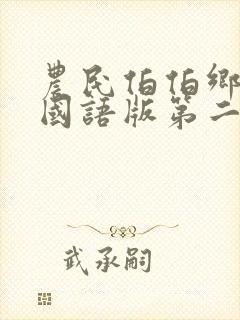 農民伯伯鄉
國語版第二
武承嗣